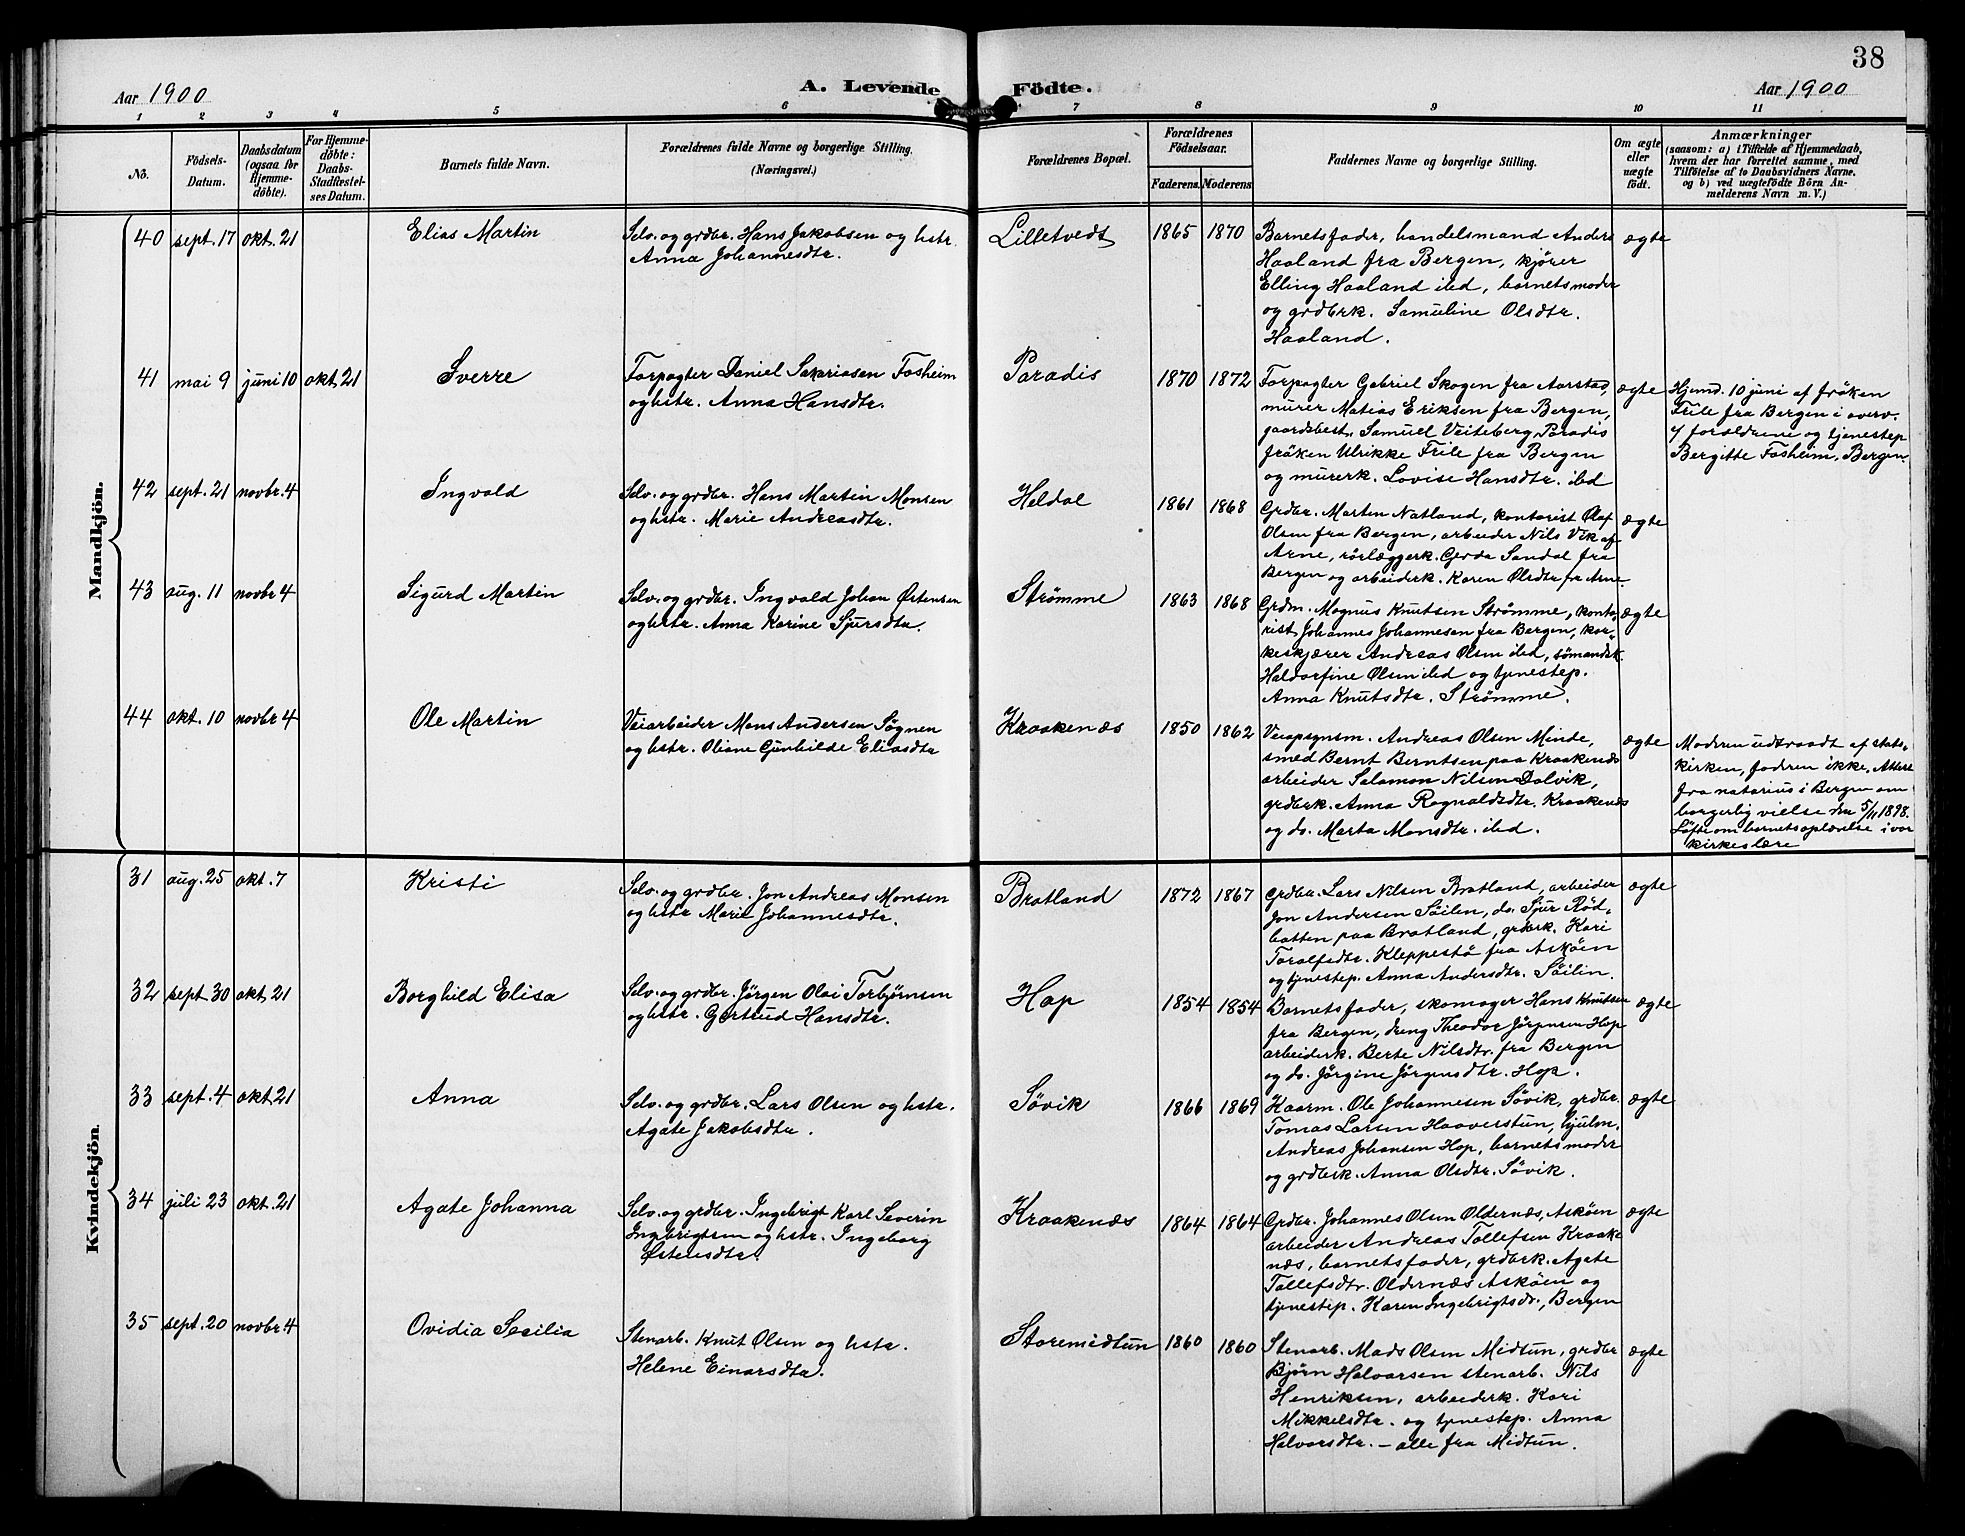 38
Aar 1900
A. Levende Födte.
Aar 1900
1 2 3 4 5 6 7 8 9 10 11
No.
Födsels-
Datum.
Daabsdatum
(ogsaa for
Hjemme-
döbte).
For Hjemme-
döbte:
Daabs-
Stadfæstel-
ses Datum.
Barnets fulde Navn.
Forældrenes fulde Navne og borgerlige Stilling.
(Næringsvei.)
Forældrenes Bopæl.
Forældrenes
Födselsaar.
Faderens. Moderens
Faddernes Navne og borgerlige Stilling.
Om ægte
eller
uægte
födt.
Anmærkninger
(saasom: a) i Tilfælde af Hjemmedaab,
hvem der har forrettet samme, med
Tilföielse af to Daabsvidners Navne.
og b) ved uægtefödte Börn An-
melderens Navn m. V.)
Mandkjön.
40 sept. 17 okt. 21
Elias Martin
Selv. og grdbr. Hans Jakobsen og hstr.
Anna Johannesdtr.
Lilletvedt
1865 1870
Barnets fader, handelsmand Anders
Haaland fra Bergen, kjører
Elling Haaland ibd, barnets moder
og grdbrk. Samuline Olsdtr.
Haaland.
ægte
41 mai 9 juni 10 okt. 21
Sverre
Forpagter Daniel Sakariasen Fosheim
og hstr. Anna Hansdtr.
Paradis
1870 1872
Forpagter Gabriel Skogen fra Aarstad,
murer Matias Eriksen fra Bergen,
gaardsbest. Samuel Veiteberg Paradis
frøken Ulrikke Friele fra Bergen
og murerk. Lovise Hansdtr. ibd
ægte
Hjemd. 10 juni af frøken
Friele fra Bergen i overv.
af forældrene og tjenestep
Bergitte Fosheim, Bergen.
42 sept. 21 novbr. 4
Ingvald
Selv. og grdbr. Hans Martin Monsen
og hstr. Marie Andreasdtr.
Heldal
1861 1868
Grdbr. Marten Natland, kontorist Olaf
Olsen fra Bergen, arbeider Nils Vik af
Arne, rørlæggerk. Gerda Sandal fra
Bergen og arbeiderk. Karen Olsdtr fr Arne
ægte
43 aug. 11 novbr 4
Sigurd Martin
Selv. og grdbr. Ingvald Johan Østensen
og hstr. Anna Karine Sjursdtr.
Strømme
1863 1868
Grdm. Magnus Knutsen Strømme, konto-
rist Johannes Johannesen fra Bergen, kor-
keskjærer Andreas Olsen ibd, sømandsk.
Haldorfine Olsen ibd og tjenestep.
Anna Knutsdtr. Strømme.
ægte
44 okt. 10 novbr 4
Ole Martin
Veiarbeider Mons Andersen Søgnen
og hstr. Oliane Gunhilde Eliasdtr
Kraakenæs
1850 1862
Veiopsynsm. Andreas Olsen Minde,
smed Bernt Berntsen paa Kraakenæs
arbeider Salamon Nilsen Dalvik,
grdbrk. Anna Ragnaldsdtr. Kraakenæs
og do. Marta Monsdtr. ibd.
ægte
Moderen udtraadt af stats-
kirken, faderen ikke. Attest
fra notarius i Bergen om
borgerlig vielse den 5/11 1898.
Løfte om barnets oplærelse i vor
kirkes lære
Kvindekjön.
31 aug. 25 okt. 7
Kristi
Selv. og grdbr. Jon Andreas Monsen
og hstr Marie Johannesdtr.
Bratland
1872 1867
Grdbr. Lars Nilsen Bratland, arbeider
Jon Andersen Søilen, do. Sjur Rød-
batten paa Bratland, grdbrk. Kari
Toralfsdtr. Kleppestø fra Askøen
og tjenestep. Anna Andersdtr. Søilin.
ægte
32 sept. 30 okt. 21
Borghild Elisa
Selv. og grdbr. Jørgen Olai Torbjørnsen
og hstr. Gertrud Hansdtr.
Hop
1854 1854
Barnets fader, skomager Hans Knutsen
fra Bergen, dreng Theodor Jørgensen Hop
arbeiderk. Berte Nilsdtr. fra Bergen
og do. Jørgine Jørgensdtr. Hop.
ægte
33 sept. 4 okt. 21
Anna
Selv. og grdbr. Lars Olsen og hstr.
Agate Jakobsdtr.
Søvik
1866 1869
Kaarm. Ole Johannesen Søvik, grdbr.
Tomas Larsen Haaverstun, hjulm.
Andreas Johansen Hop, barnets moder
og grdbrk. Anna Olsdtr. Søvik.
ægte
34 juli 23 okt. 21
Agate Johanna
Selv. og grdbr. Ingebrigt Karl Severin
Ingebrigtsen og hstr. Ingeborg
Østensdtr.
Kraakenæs
1864 1864
Grdbr. Johannes Olsen Oldernæs, Askøen
arbeider Andreas Tollefsen Kraake
næs, barnets fader, grdbrk. Agate
Tollefsdtr. Oldernæs Askøen og
tjenestep. Karen Ingebrigtsdr., Bergen
ægte
35 sept. 20 novbr. 4
Ovidia Secilia
Stenarb. Knut Olsen og hstr.
Helene Einarsdtr.
Storemidtun
1860 1860
Stenarb. Mads Olsen Midtun, grdbr
Bjørn Halvorsen stenarb. Nils
Henriksen, arbeiderk. Kari
Mikkelsdtr. og tjenestep. Anna
Halvorsdtr. – alle fra Midtun.
ægte